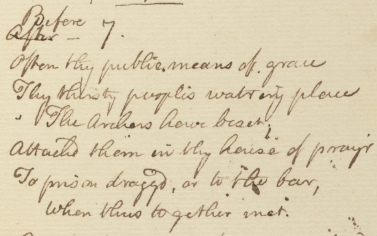 Before
After — 7.
Often thy public means of grace
Thy thirsty peoples watering place
" The Archers have beset;
Attack'd them in thy house of prayr
To prison dragg'd, or to the bar,
When thus together met.